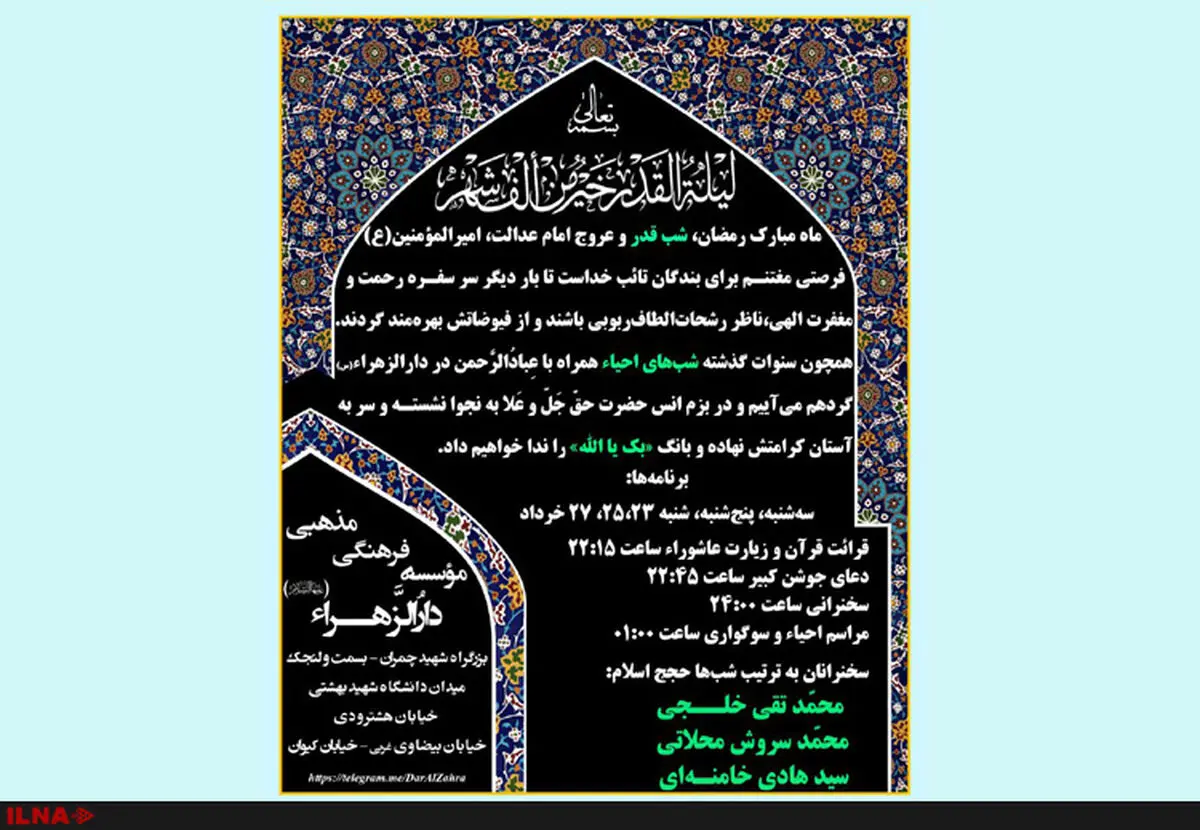 بسمه تعالی
لیلة القدر خیر من ألف شهر
ماه مبارک رمضان، شب قدر و عروج امام عدالت، امیرالمؤمنین(ع)
فرصتی مغتنـم برای بندگان تائب خداست تا بار دیگر سر سفـره رحمت و
مغفرت الهی،ناظر رشحات‌الطاف‌ربوبی باشند و از فیوضاتش بهره‌مند گردند.
همچون سنوات گذشته شب‌های احیاء همراه با عِبادُالرَّحمن در دارالزهراء(س)
گردهم می‌آییم و در بزم انس حضرت حقّ جَلّ و عَلا به نجوا نشستـه و سر به
آستان کرامتش نهاده و بانگ «بک یا الله» را ندا خواهیم داد.
برنامه‌ها:
سه‌شنبه، پنج‌شنبه، شنبه ۲۵،۲۳، ۲۷ خرداد
قرائت قرآن و زیارت عاشوراء ساعت ۲۲:۱۵
دعای جوشن کبیر ساعت ۲۲:۴۵
سخنرانی ساعت ۲۴:۰۰
مراسم احیاء و سوگواری ساعت ۰۱:۰۰
سخنرانان به ترتیب شب‌ها حجج اسلام:
محمّد تقی خلـــجی
محمّد سروش محلاتی
سید هادی خامنـه‌ای
مؤسسه
فرهنگی
مذهبی
دارُالزَّهــراء
بزرگراه شهید چمران - بسمت ولنجک
میدان دانشگاه شهید بهشتی
خیابان هشترودی
خیابان بیضاوی غربی - خیابان کیوان
https://telegram.me/DarAlZahra
ILNA